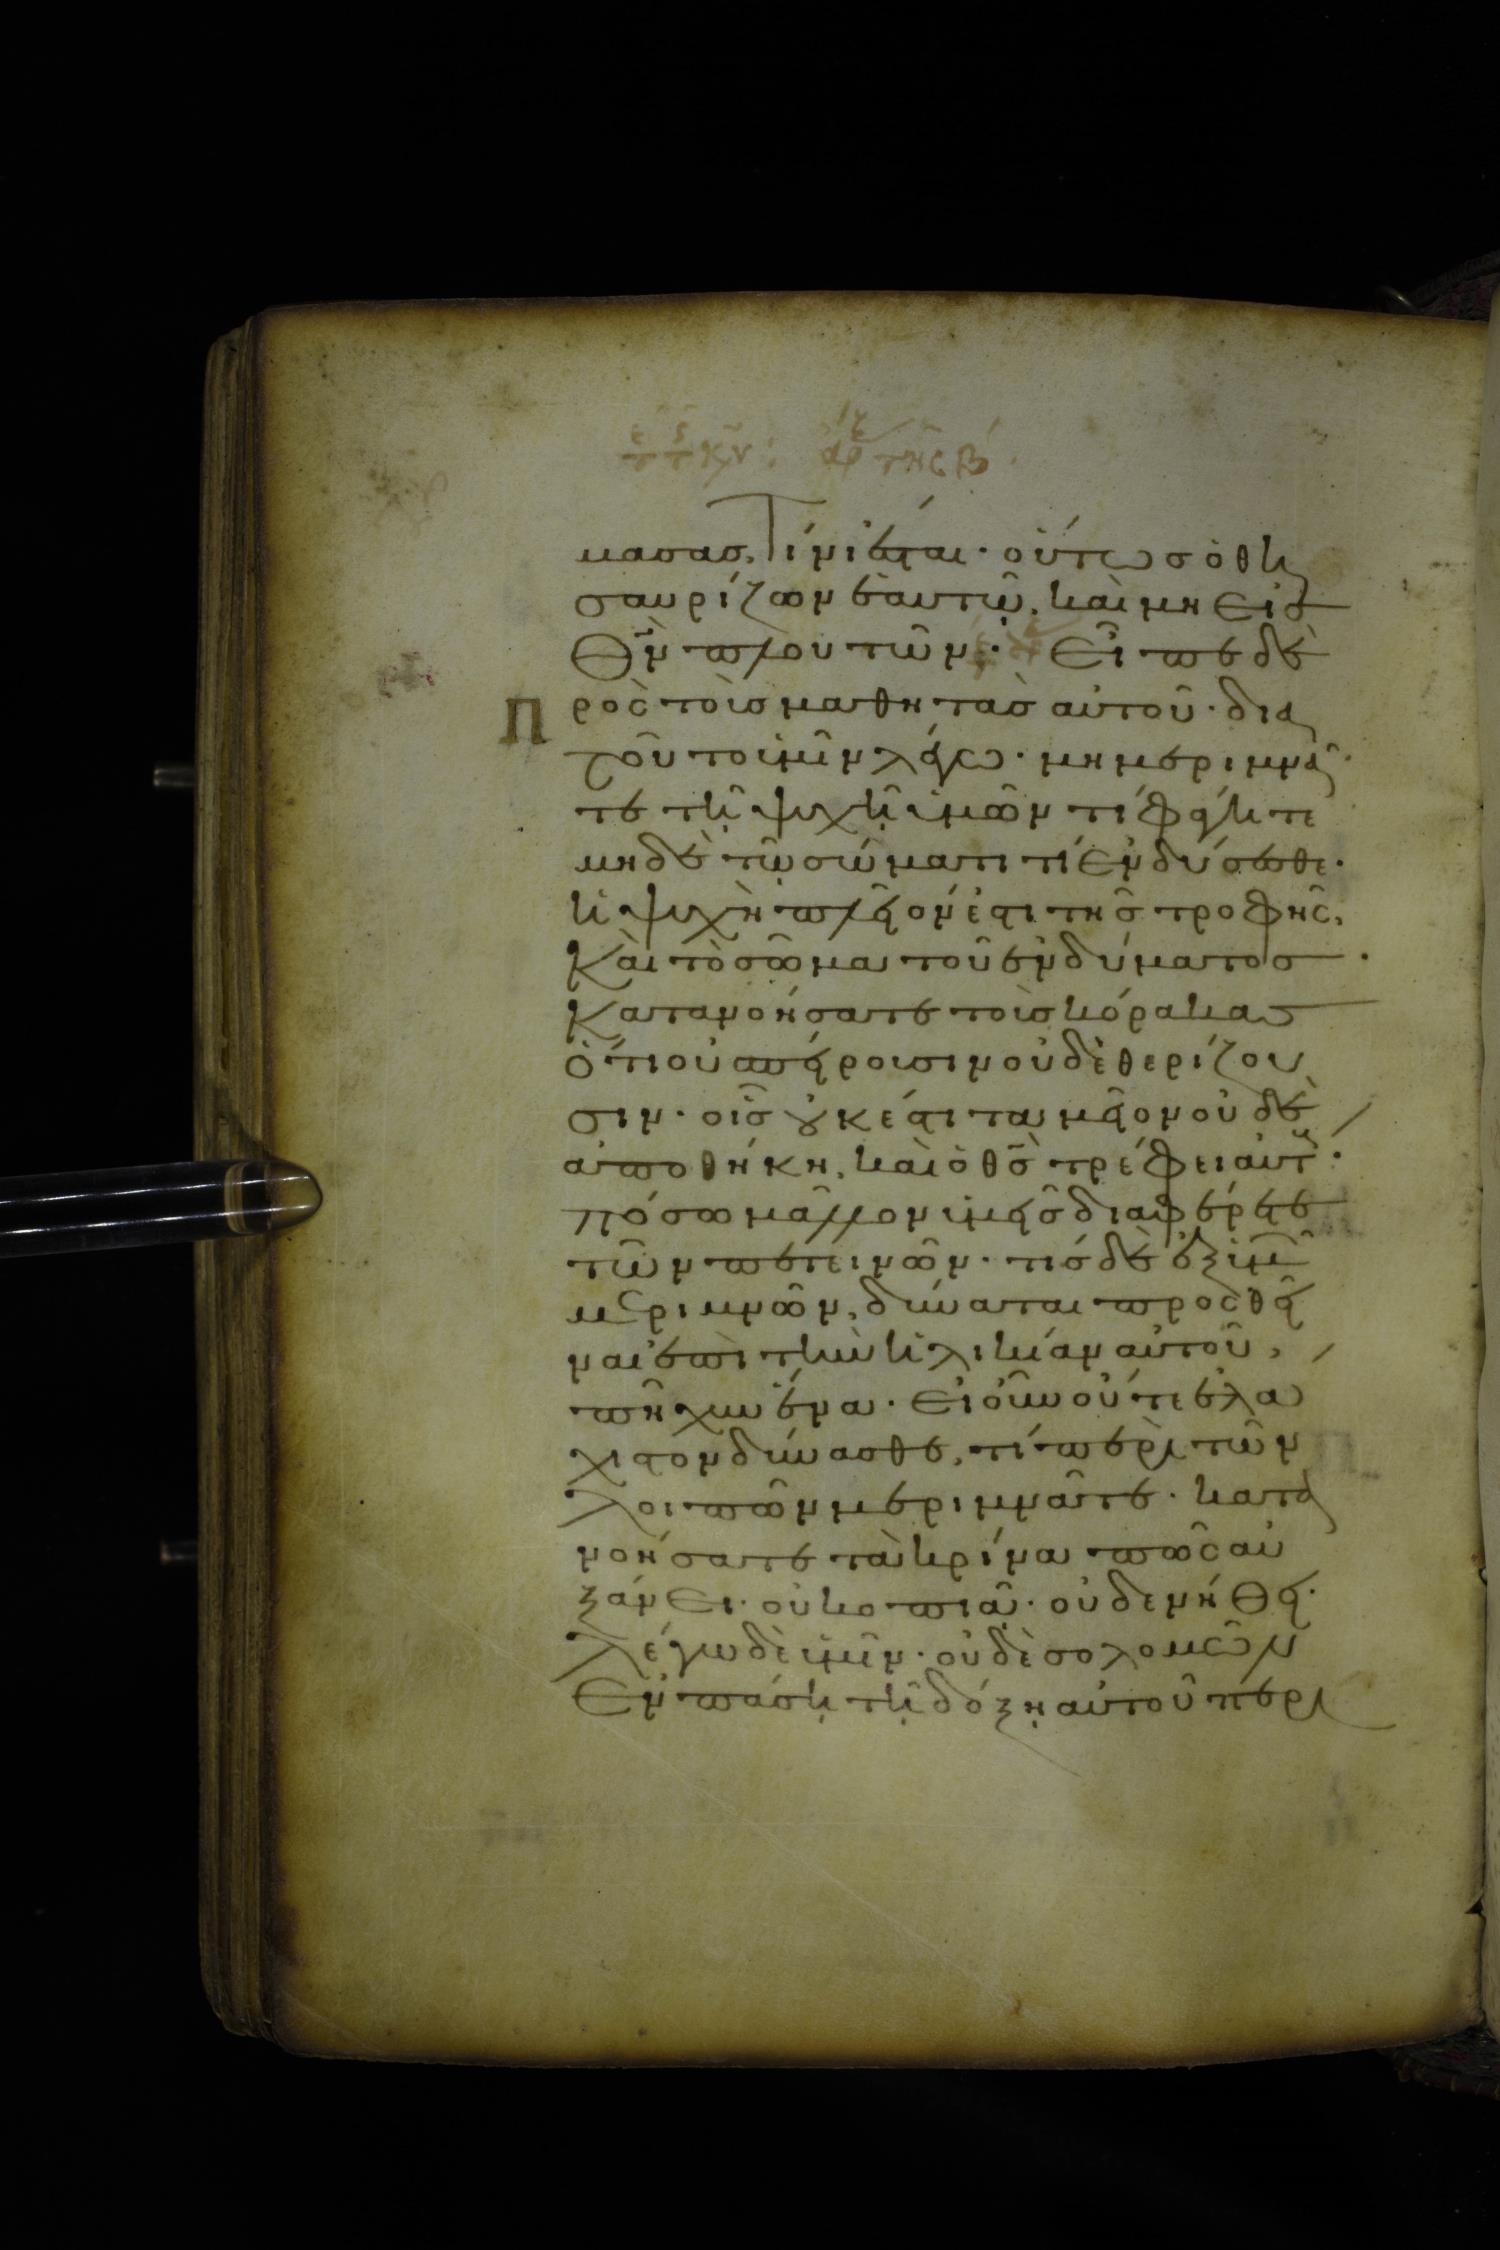 μασας, τίνι ἔσται· οὕτως ὁ θη
σαυρίζων ἑαυτῷ, καὶ μὴ εἰς
Θν̅ πλουτῶν· Εἶπε δὲ
Προς τοὺς μαθητὰς αὐτοῦ· δια
τοῦτο ὑμῖν λέγω· μὴ μεριμνᾶ
τε τῇ ψυχῇ ὑμῶν τί φάγητε
μηδὲ τῷ σώματι τί ἐνδύσησθε·
ἡ ψυχὴ πλεῖον ἐστι τῆς τροφῆς,
Καὶ τὸ σῶμα τοῦ ἐνδύματος·
Κατανοήσατε τοὺς κόρακας
ὅτι οὐ σπείρουσιν οὐδὲ θερίζου
σιν· οἷς οὐκ ἔστι ταμεῖον οὐδὲ
ἀποθήκη, καὶ ὁ θς̅ τρέφει αὐτ·
πόσω μᾶλλον ὑμεῖς διαφέρετε
τῶν πετεινῶν· τίς δὲ ἐξ ὑμ
μεριμνῶν, δύναται προσθεῖ
ναι ἐπὶ τὴν ἡλικίαν αὐτοῦ,
πῆχυν ἕνα· Εἰ οὖν οὔτε ἐλα
χιστον δύνασθε, τί περὶ τῶν
λοιπῶν μεριμνᾶτε· κατα
νοήσατε τὰ κρίνα πῶς αὐ
ξάνει· οὐ κοπιᾷ· οὐδε νήθει·
λέγω δὲ ὑμῖν· οὐδὲ σολομῶν
Ἐν πάσῃ τῇ δόξῃ αὐτοῦ περι